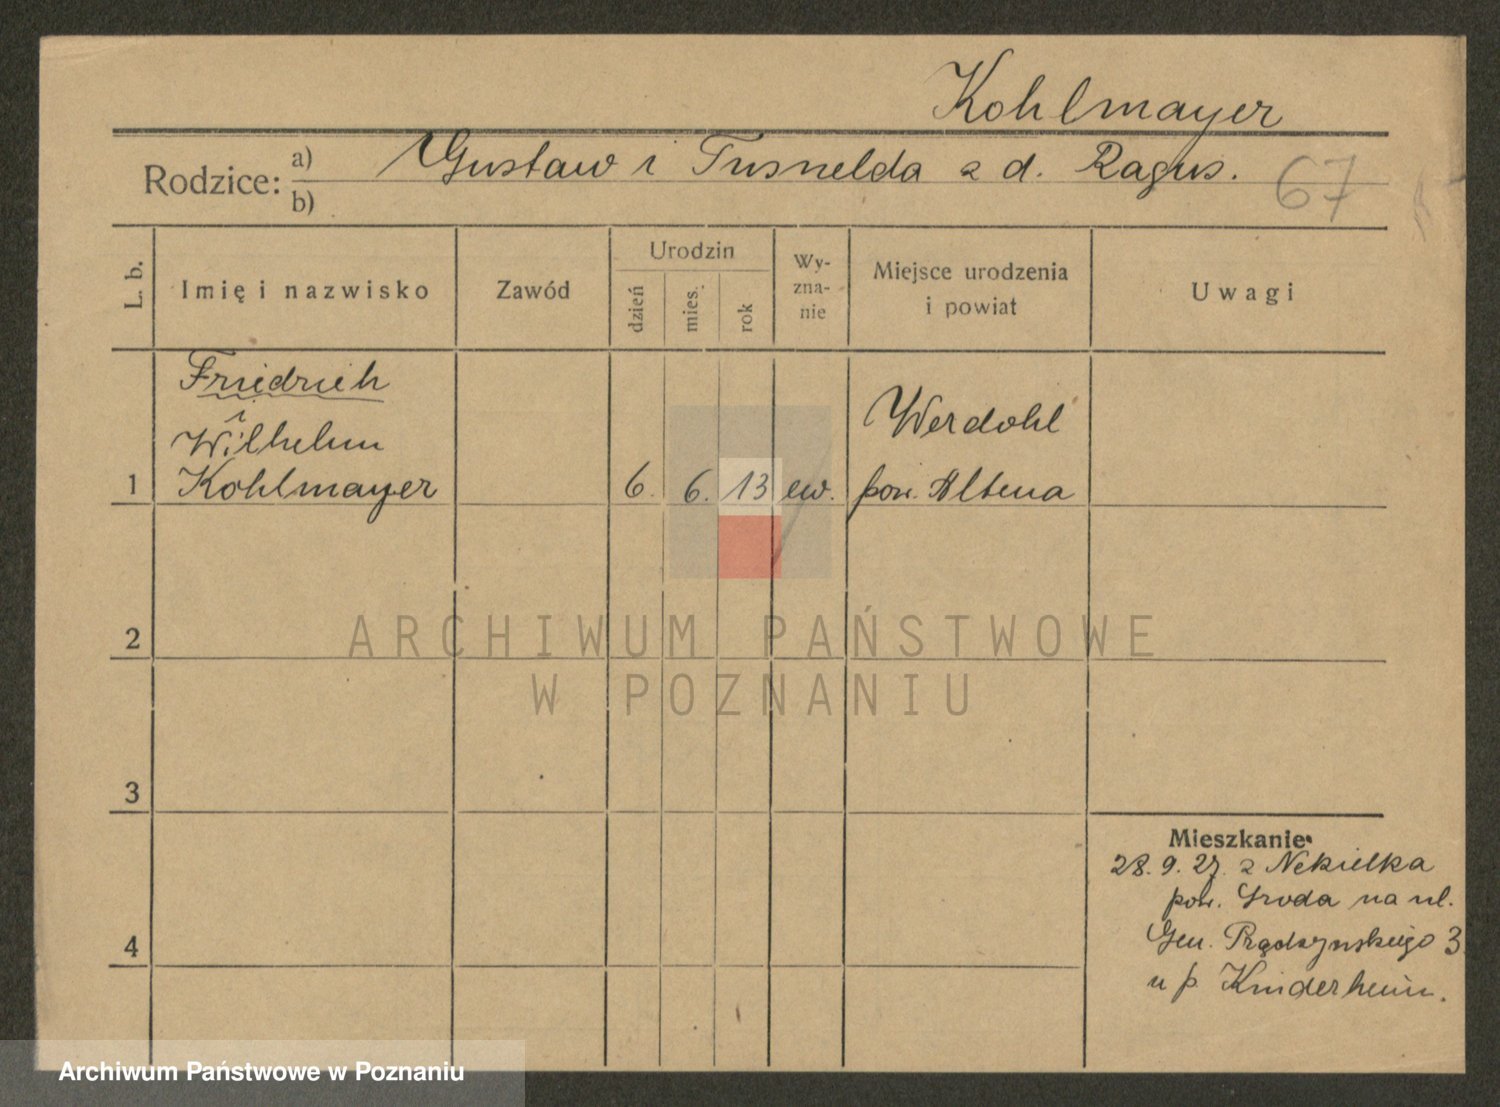 Kohlmayer
Rodzice: a) Gustaw i Tusnelda z d. Ragus. 67
b)
L. b.
Imię i nazwisko
Zawód
Urodzin
dzień
mies.
rok
Wy-
zna-
nie
Miejsce urodzenia
i powiat
Uwagi
Friedrich
Wilhelm
1 Kohlmayer 6. 6. 13 ew.
Werdohl
pow. Altena
2
3
4
ARCHIWUM PAŃSTWOWE
W POZNANIU
Mieszkanie
28. 9. 27. z Nekielka
pow. Środa na ul.
Gen. Prądzyńskiego 3
u p. Kinderheim.
Archiwum Państwowe w Poznaniu